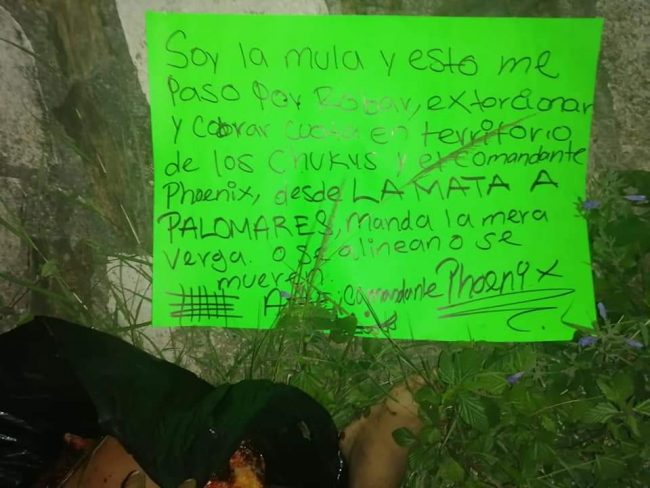 Soy la mula y esto me
Paso Por Robar, extorcionar
y cobrar cuota en territorio
de los Chukys y el comandante
Phoenix, desde LA MATA A
PALOMARES, manda la mera
verga. o se alinean o se
mueren.
comandante Phoenix